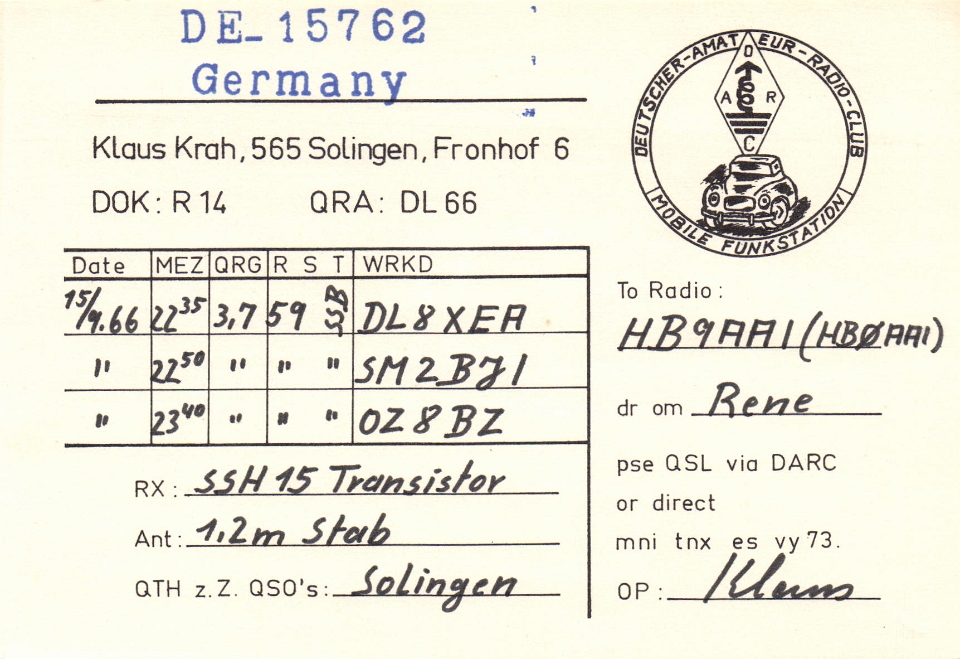 DE-15762
Germany
Klaus Krah, 565 Solingen, Fronhof 6
DOK: R 14 QRA: DL 66
DEUTSCHER-AMATEUR-RADIO-CLUB
D
A R
C
MOBILE FUNKSTATION
Date MEZ QRG R S T WRKD
15/9.66 22 35 3,7 59 SSB DL8XEA
" 22 50 " " " SM2BJI
" 23 40 " " " OZ8BZ
RX: SSH 15 Transistor
Ant: 1,2m Stab
QTH z.Z. QSO's: Solingen
To Radio:
HB9AAI (HBØAAI)
dr om Rene
pse QSL via DARC
or direct
mni tnx es vy 73.
OP: Klaus